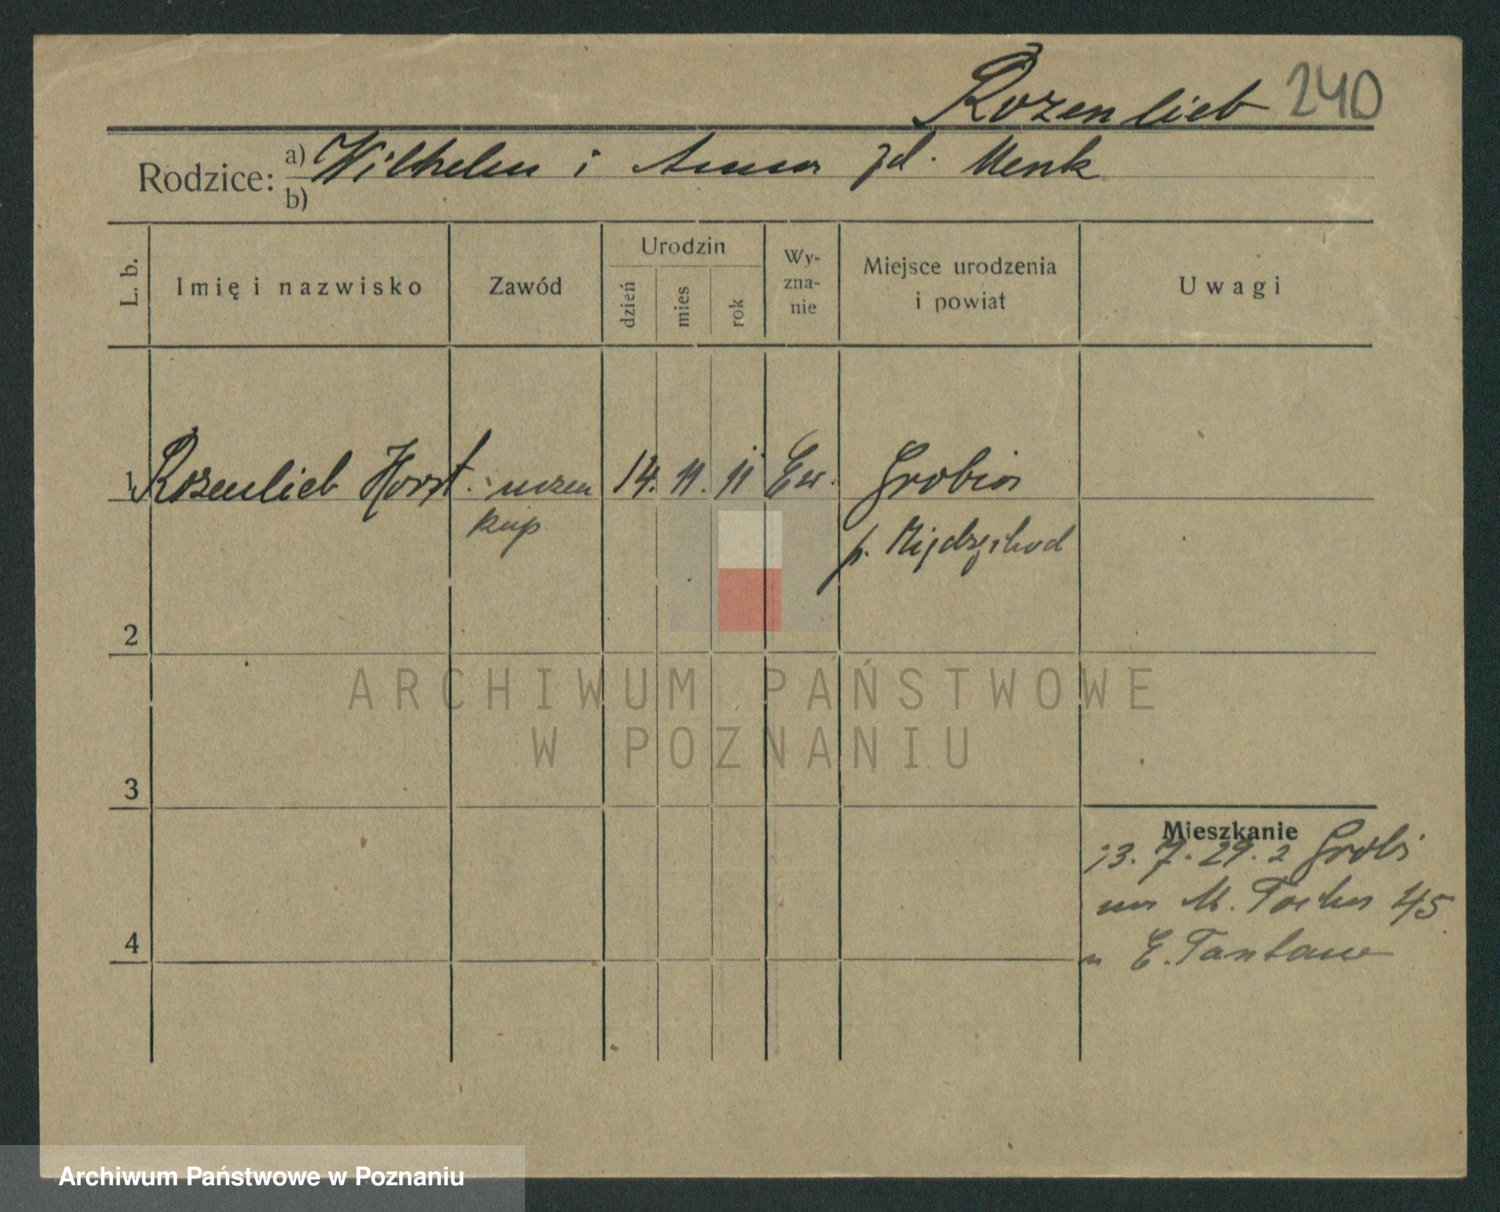 Rozenlieb 240
Rodzice: a) Wilhelm i Anna zd. Menk
b)
L. b.
Imię i nazwisko
Zawód
Urodzin
dzień
mies
rok
Wy-
zna-
nie
Miejsce urodzenia
i powiat
Uwagi
1 Rozenlieb Horst. uczeń 14. 11. 11 Ew. Grobia
kup p. Międzychod
2
3
4
Mieszkanie
13. 7. 29. z Grobi
na M. Focha 45
u E. Tantau
ARCHIWUM PAŃSTWOWE
W POZNANIU
Archiwum Państwowe w Poznaniu